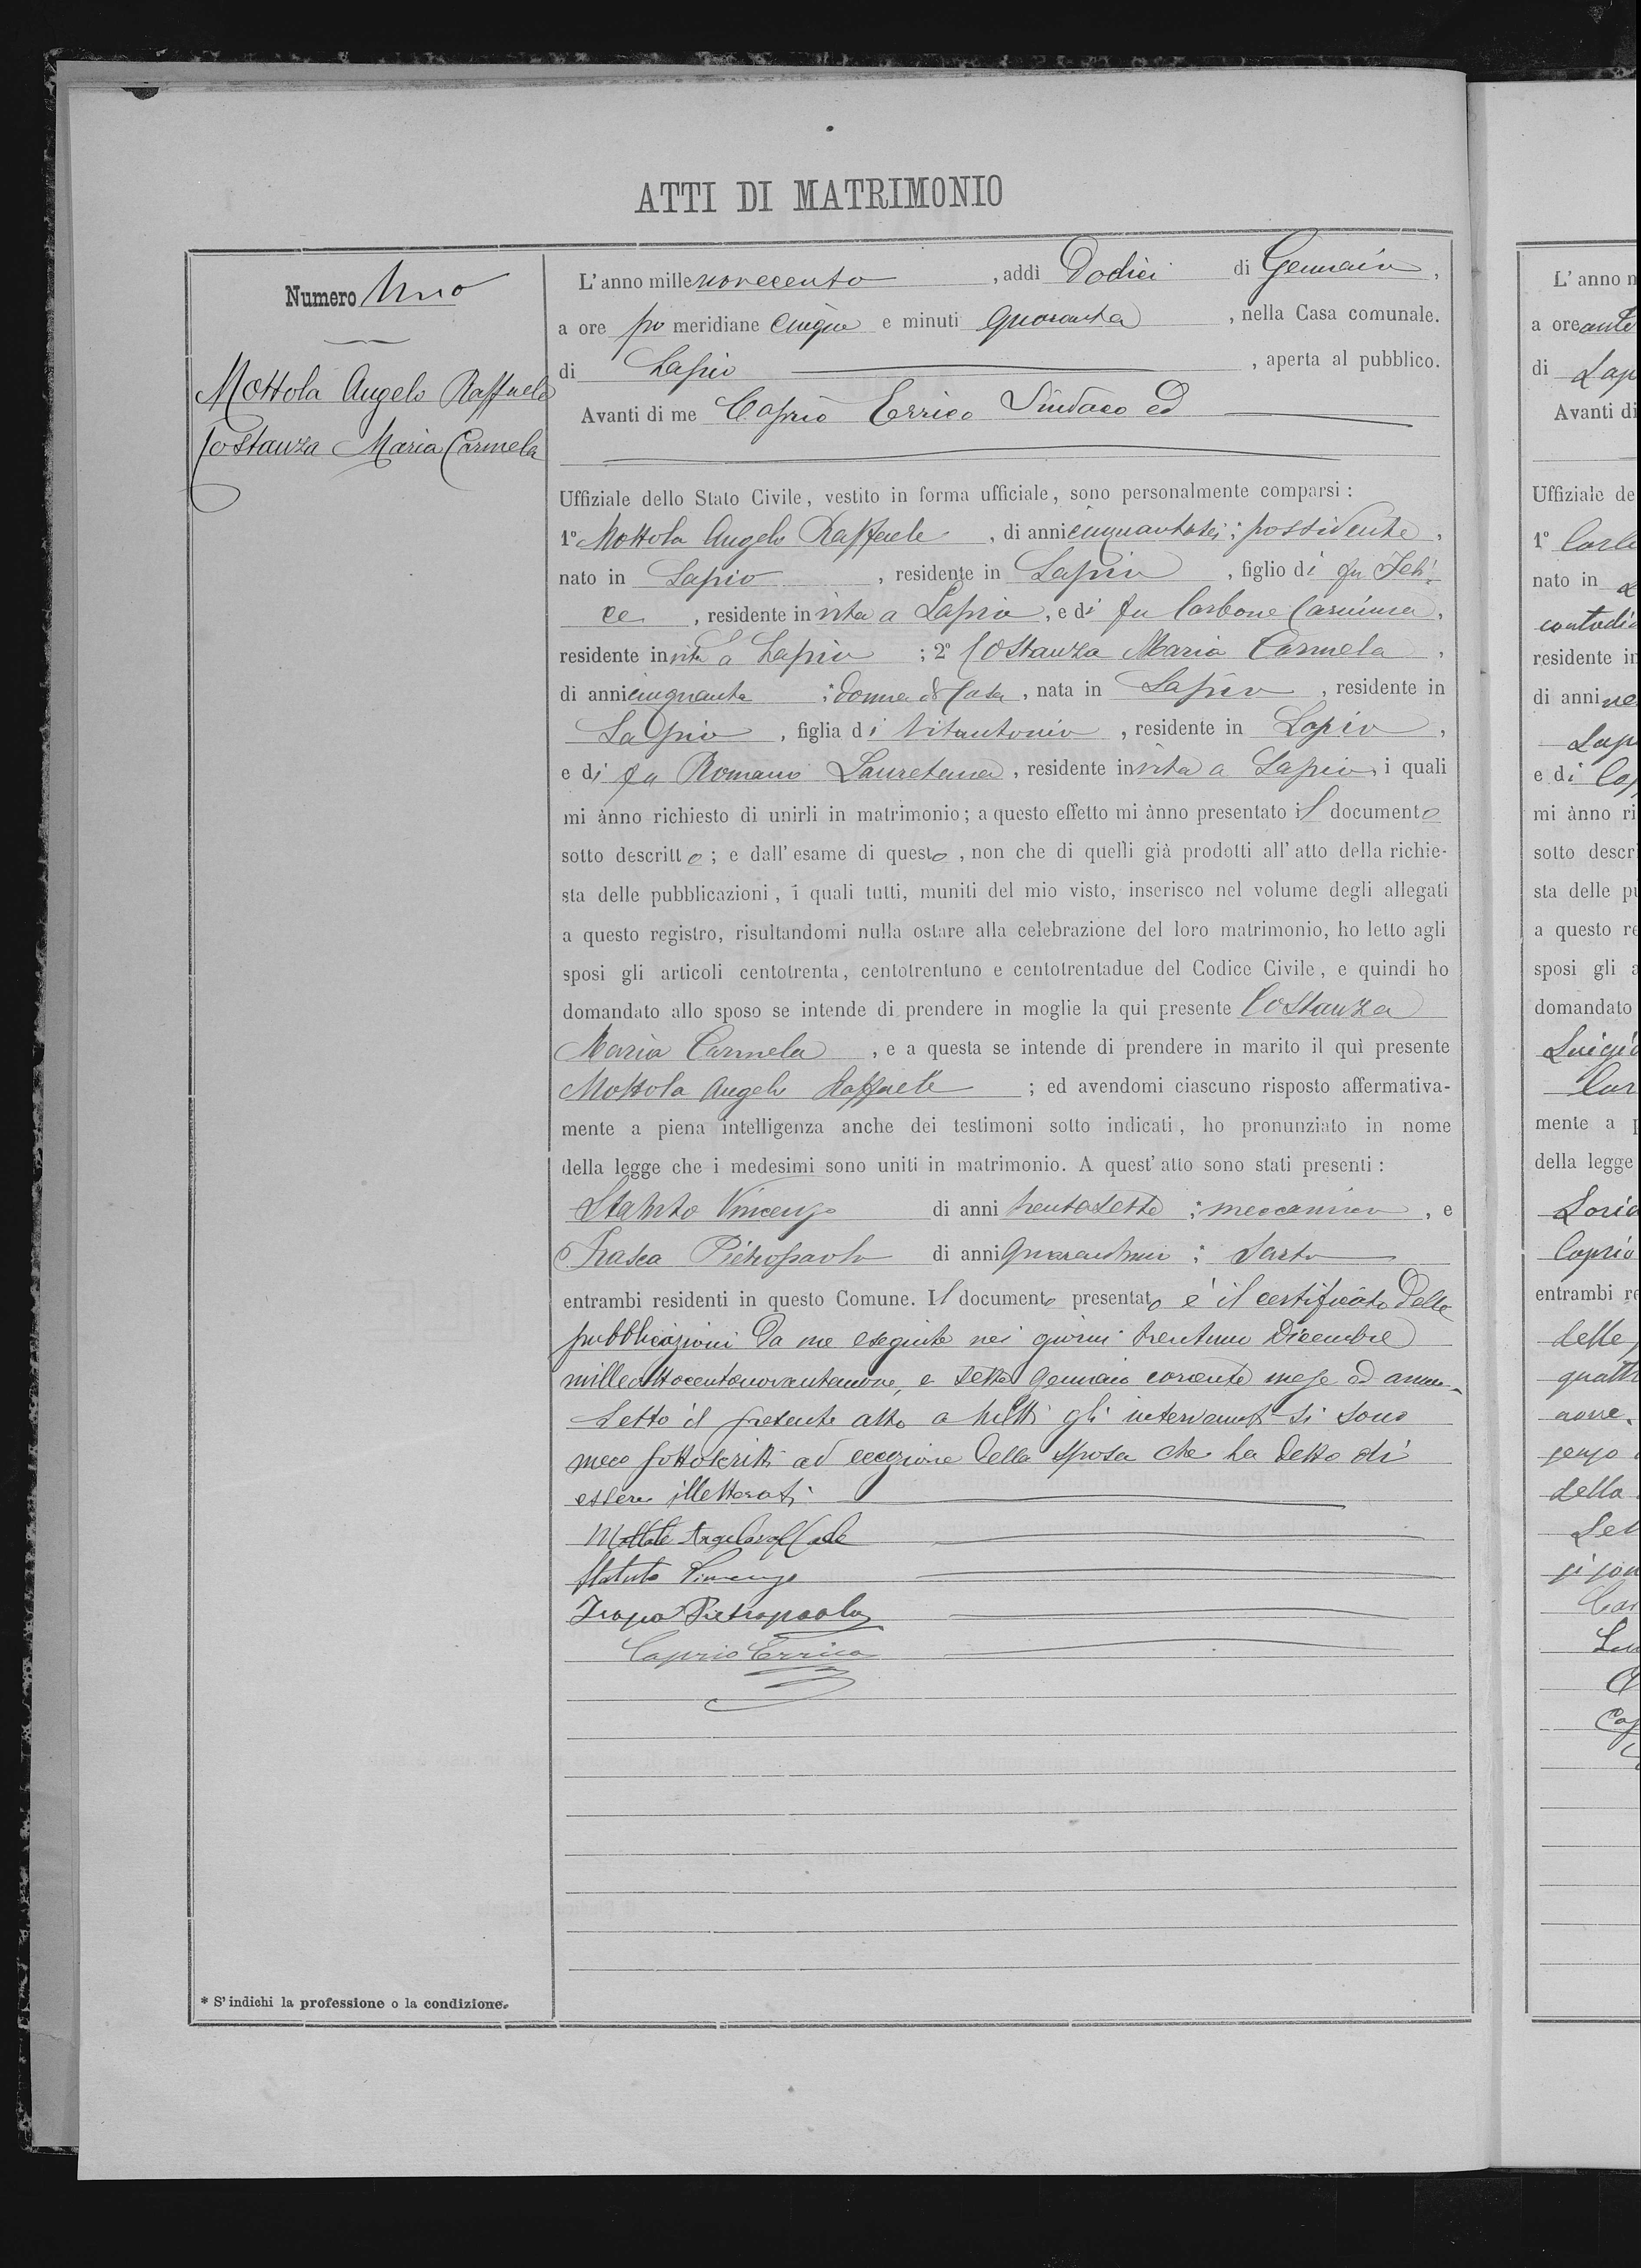 ATTI DI MATRIMONIO
Numero Uno
Mottola Angelo Raffaele
Costanza Maria Carmela
L'anno millenovecento, addì Dodici di Gennaio,
a ore po meridiane cinque e minuti quaranta, nella Casa comunale.
di Lapio, aperta al pubblico.
Avanti di me Caprio Errico Sindaco ed
Uffiziale dello Stato Civile, vestito in forma ufficiale, sono personalmente comparsi:
1º Mottola Angelo Raffaele, di anni cinquantasei; possidente,
nato in Lapio, residente in Lapio, figlio di fu Feli-
ce, residente in vita a Lapio, e di fu Carbone Carmina,
residente in vita a Lapio; 2º Costanza Maria Carmela,
di anni cinquanta; donna di Casa, nata in Lapio, residente in
Lapio, figlia di Vitantonio, residente in Lapio,
e di fu Romano Lauretana, residente in vita a Lapio, i quali
mi ànno richiesto di unirli in matrimonio; a questo effetto mi ànno presentato il documento
sotto descritto; e dall'esame di questo, non che di quelli già prodotti all'atto della richie-
sta delle pubblicazioni, i quali tutti, muniti del mio visto, inserisco nel volume degli allegati
a questo registro, risultandomi nulla ostare alla celebrazione del loro matrimonio, ho letto agli
sposi gli articoli centotrenta, centotrentuno e centotrentadue del Codice Civile, e quindi ho
domandato allo sposo se intende di prendere in moglie la qui presente Costanza
Maria Carmela, e a questa se intende di prendere in marito il qui presente
Mottola Angelo Raffaele; ed avendomi ciascuno risposto affermativa-
mente a piena intelligenza anche dei testimoni sotto indicati, ho pronunziato in nome
della legge che i medesimi sono uniti in matrimonio. A quest'atto sono stati presenti:
Statuto Vincenzo di anni trentasette; meccanico, e
Trasca Pietropaolo di anni; Sarto
entrambi residenti in questo Comune. Il documento presentato è il certificato delle
pubblicazioni da me eseguite nei giorni trentuno Dicembre
milleottocentonovantanove, e sette Gennaio corrente mese ed anno.
Letto il presente atto a tutti gli intervenuti si sono
meco sottoscritti ad eccezione della sposa che ha detto di
essere illetterati
Mottola Angelaraffaele
Statuto Vincenzo
Pietropaolo
Caprio Errico
* S'indichi la professione o la condizione.
L'anno m
a ore ante
di Lap
Avanti di
Uffiziale de
1º Carb
nato in L
contadi
residente in
di anni
Lap
e di Cap
mi ànno ri
sotto descr
sta delle pu
a questo re
sposi gli a
domandato
Luigi
Car
mente a p
della legge
Caprio
entrambi re
delle
quatt
nove.
della